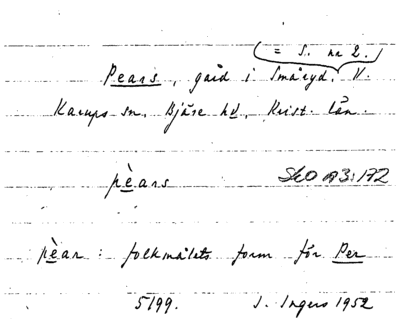 = S. nr 2.
Pears, gård i Småryd, V.
Karups sn, Bjäre hd, Krist. län.
pèars SkO A3:172
pèar : folkmålets form för Per
5199. I. Ingers 1952